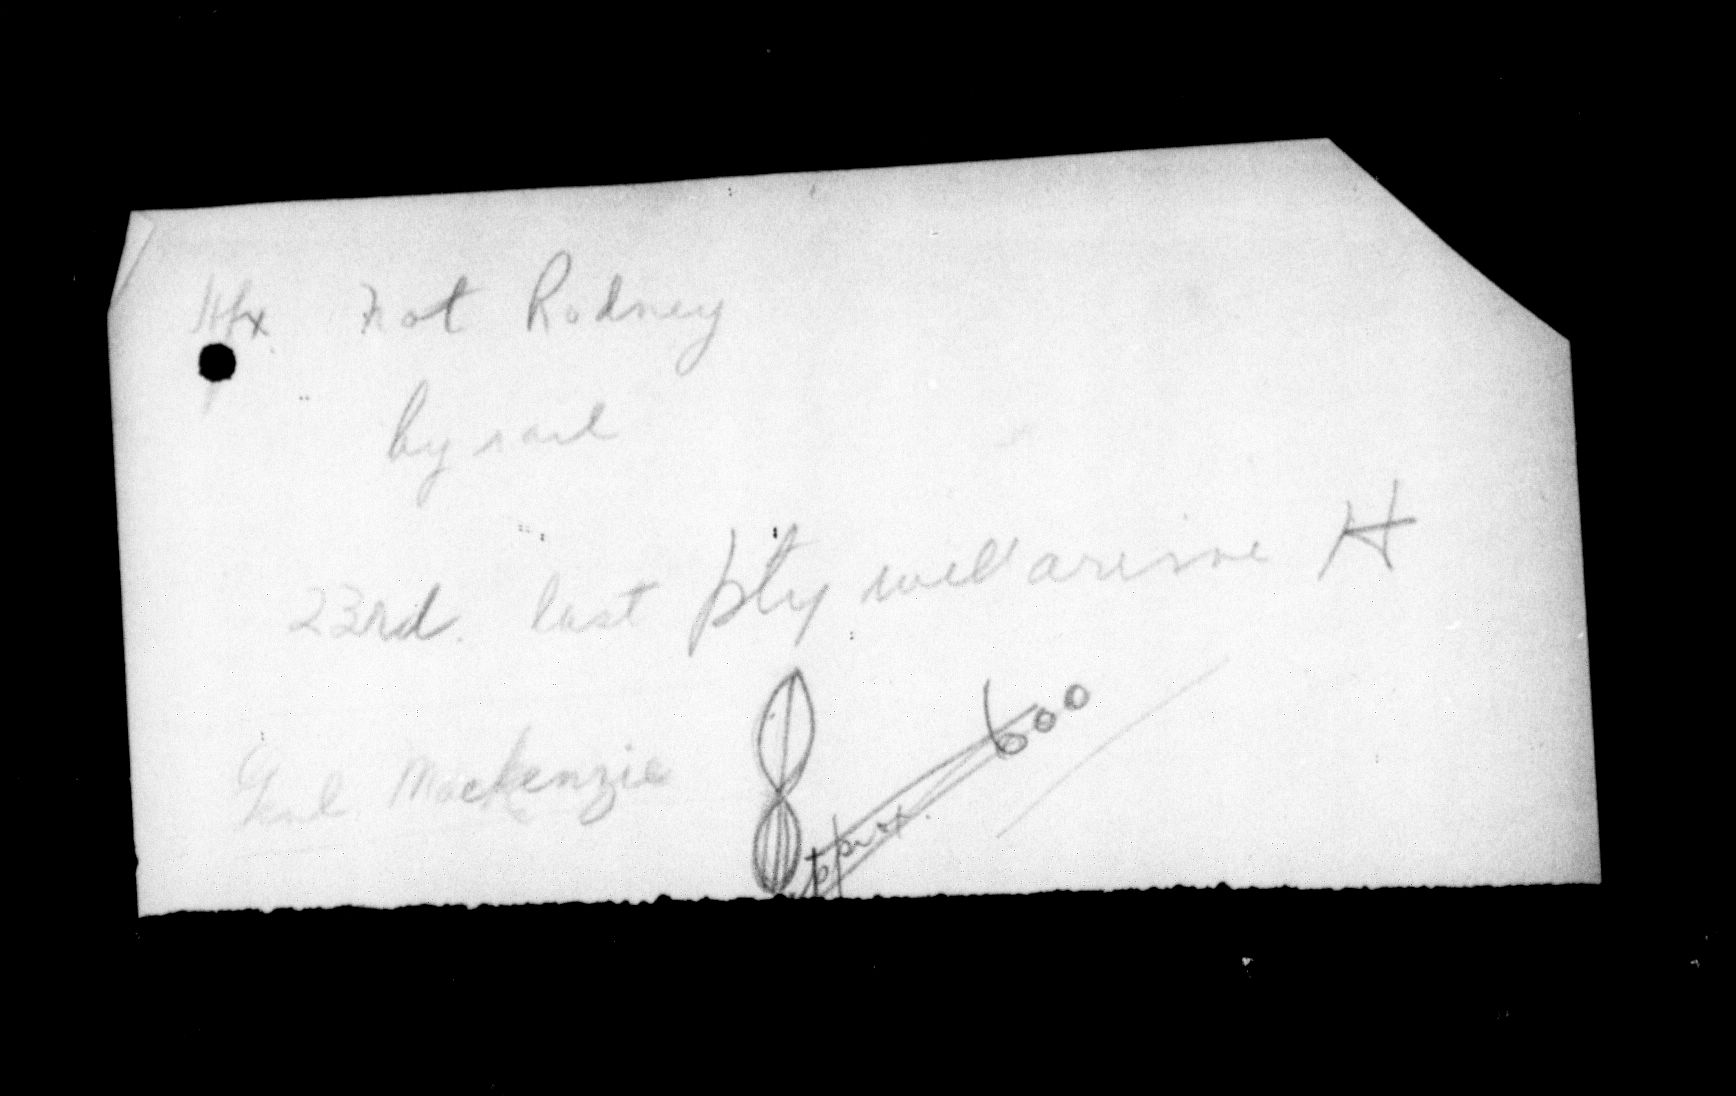 Hfx not Rodney
by rail
23rd. last pty will arrive H
Genl. Mackenzie
approx. 600